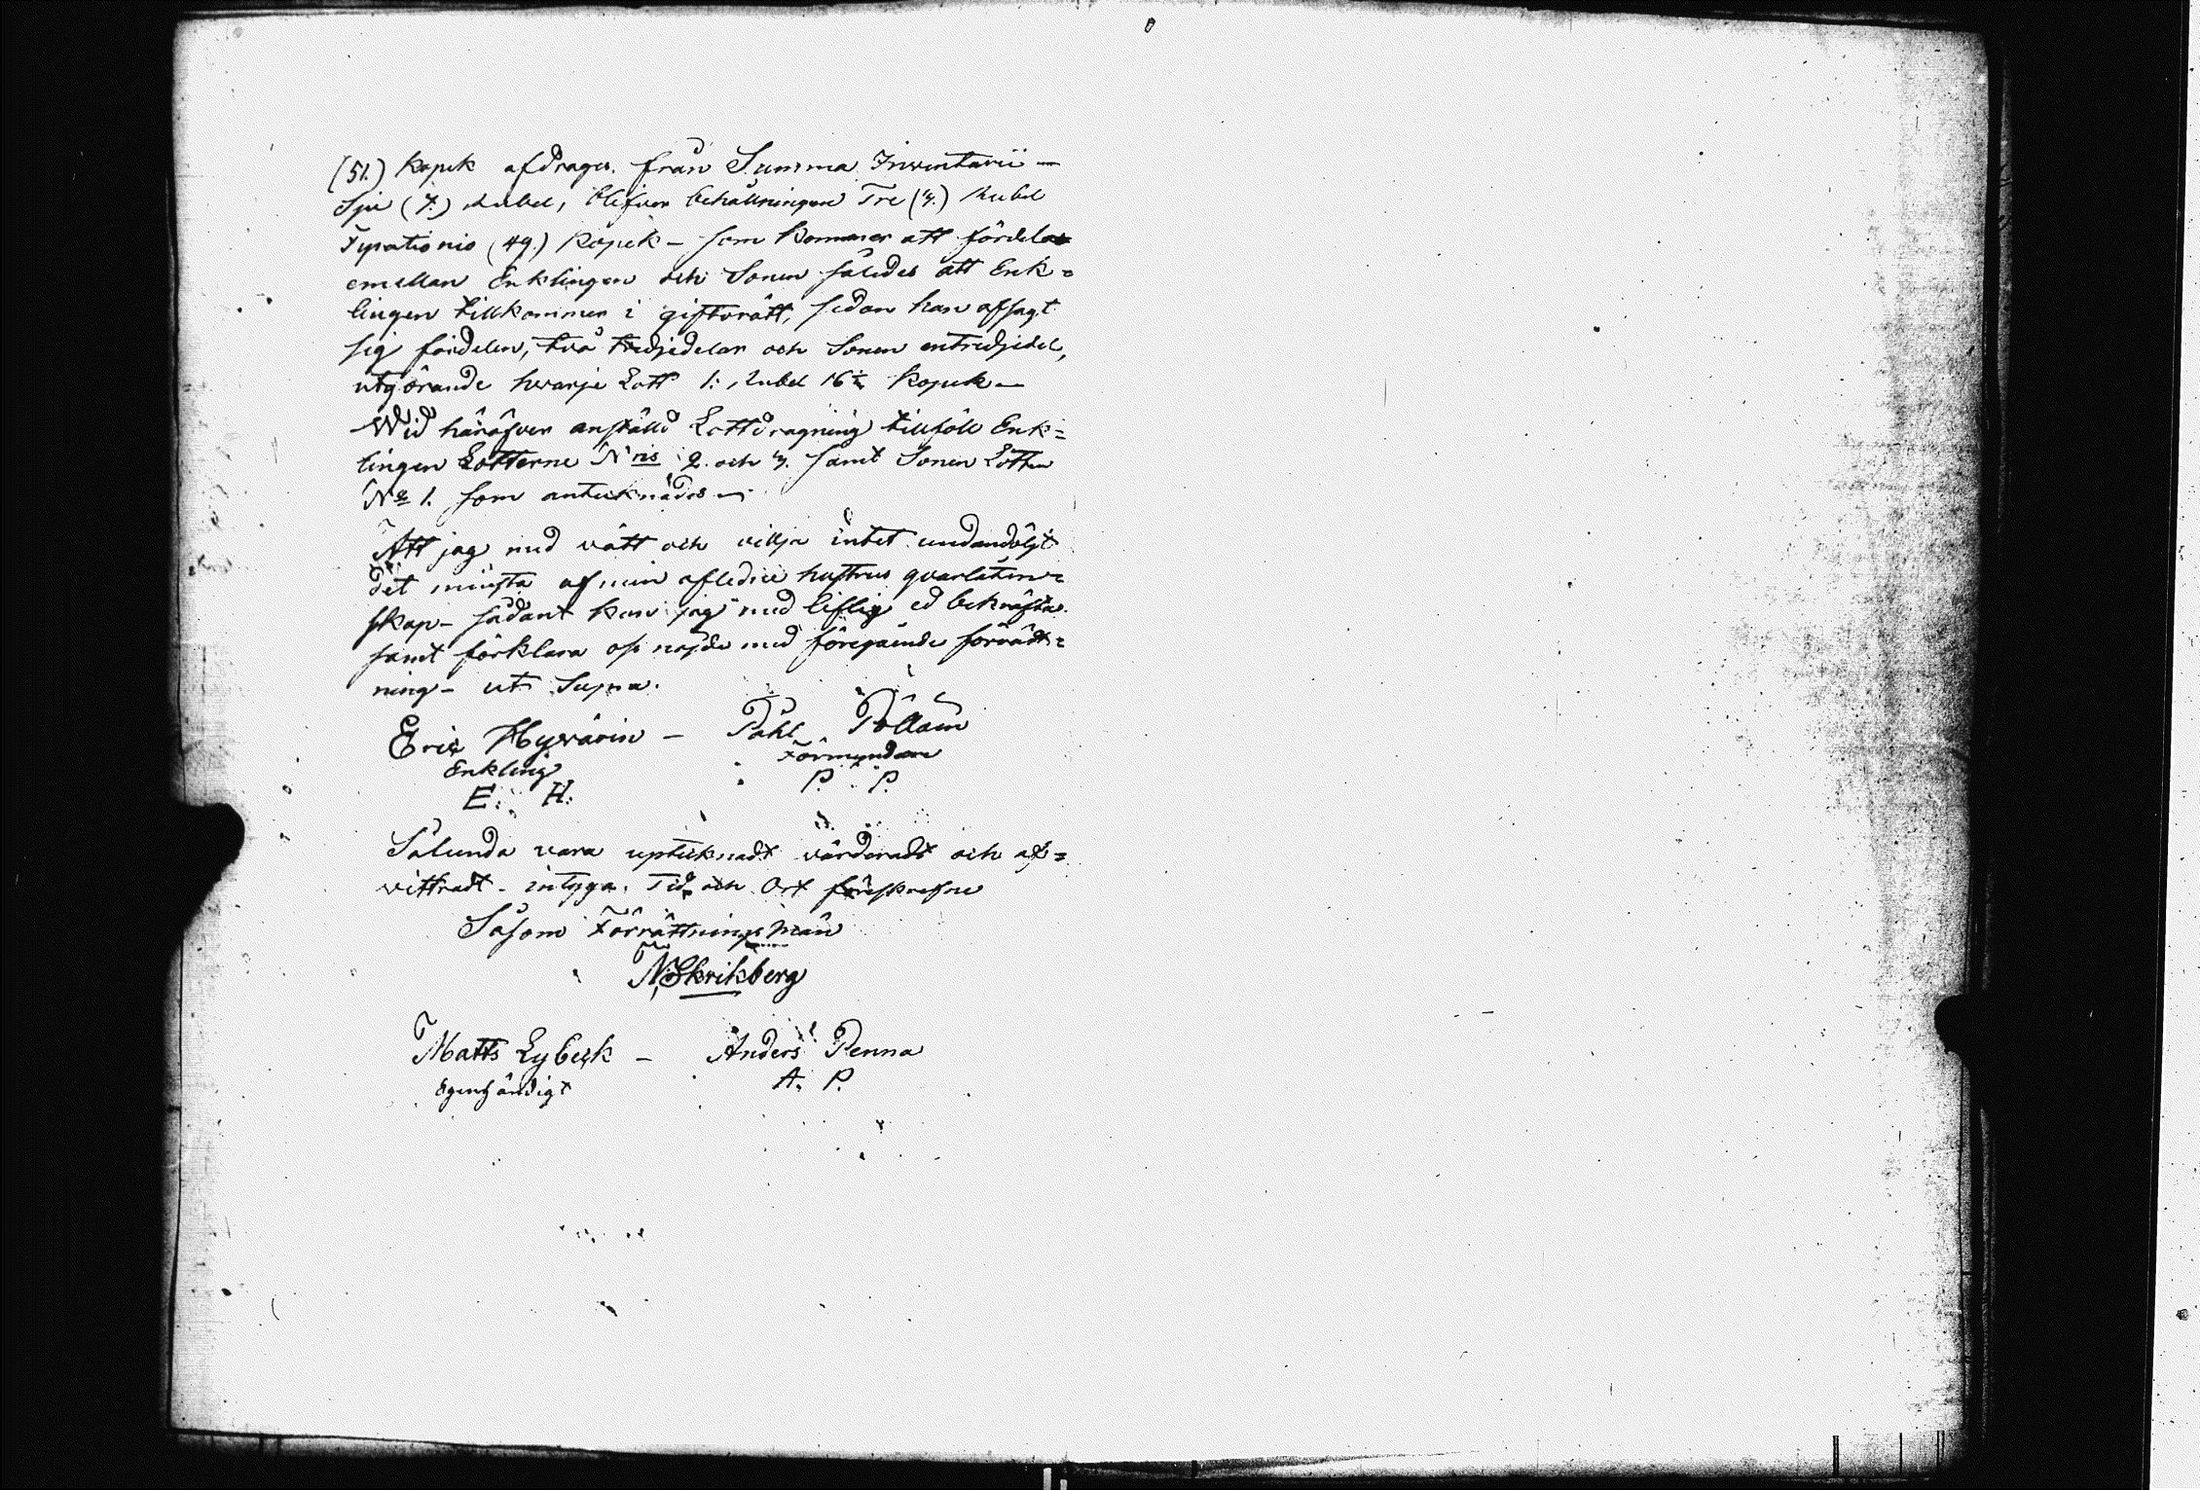 (51.) kopek afdrages från Summa Inventarii —
Sju (7.) Rubel, blifver behållningen Tre (3.) Rubel
Fyrationio (49.) kopek — som kommer att fördelas
emellan Enklingen och Sonen således att Enk=
lingen tillkommer i giftorätt, sedan han afsagt
sig fördelen, två tredjedelar och Sonen entredjedel,
utgörande hvarje Lott 1: Rubel 16⅓ kopek —
Wid häröfver anställd Lottdragning tillföll Enk=
lingen Lotterne N:ris 2. och 3. samt Sonen Lotten
No 1. som antecknades —
Att jag med vätt och vilja intet undandöljt
det minsta af min aflidne hustrus qvarlåten=
skap — sådant kan jag med liflig ed bekräfta
samt förklara oss nöjde med föregående förrätt=
ning — ut Supra.
Eric Hyvärin — Påhl Pölläin
Enkling Förmyndare
E: H: P. P.
Sålunda vara uptecknadt värderadt och af=
vittradt — intyga. Tid och Ort föreskrefne
Såsom Förrättningsmän
N. Skrikberg
Matts Lybeck — Anders Penna
Egenhändigt A. P.